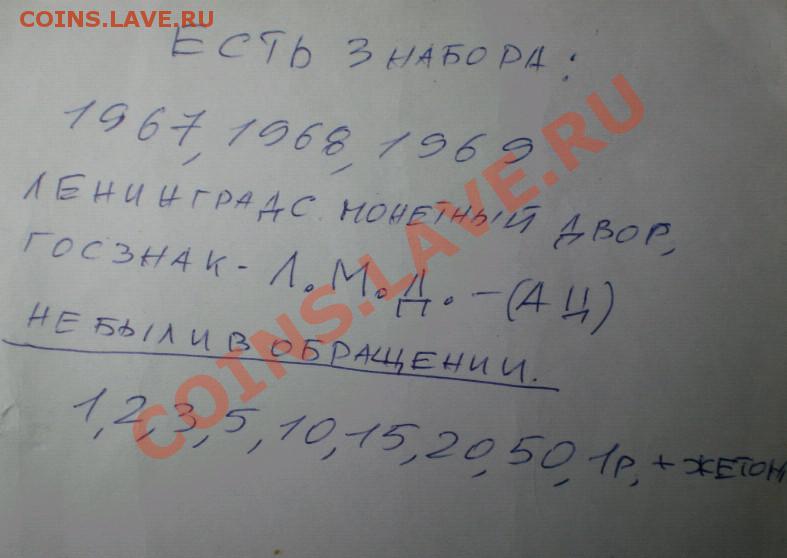 COINS.LAVE.RU
ЕСТЬ 3 НАБОРА:
1967, 1968, 1969
ЛЕНИНГРАДС. МОНЕТНЫЙ ДВОР,
ГОСЗНАК - Л.М.Д. - (АЦ)
НЕ БЫЛИ В ОБРАЩЕНИИ.
1, 2, 3, 5, 10, 15, 20, 50, 1р, + ЖЕТОН
COINS.LAVE.RU